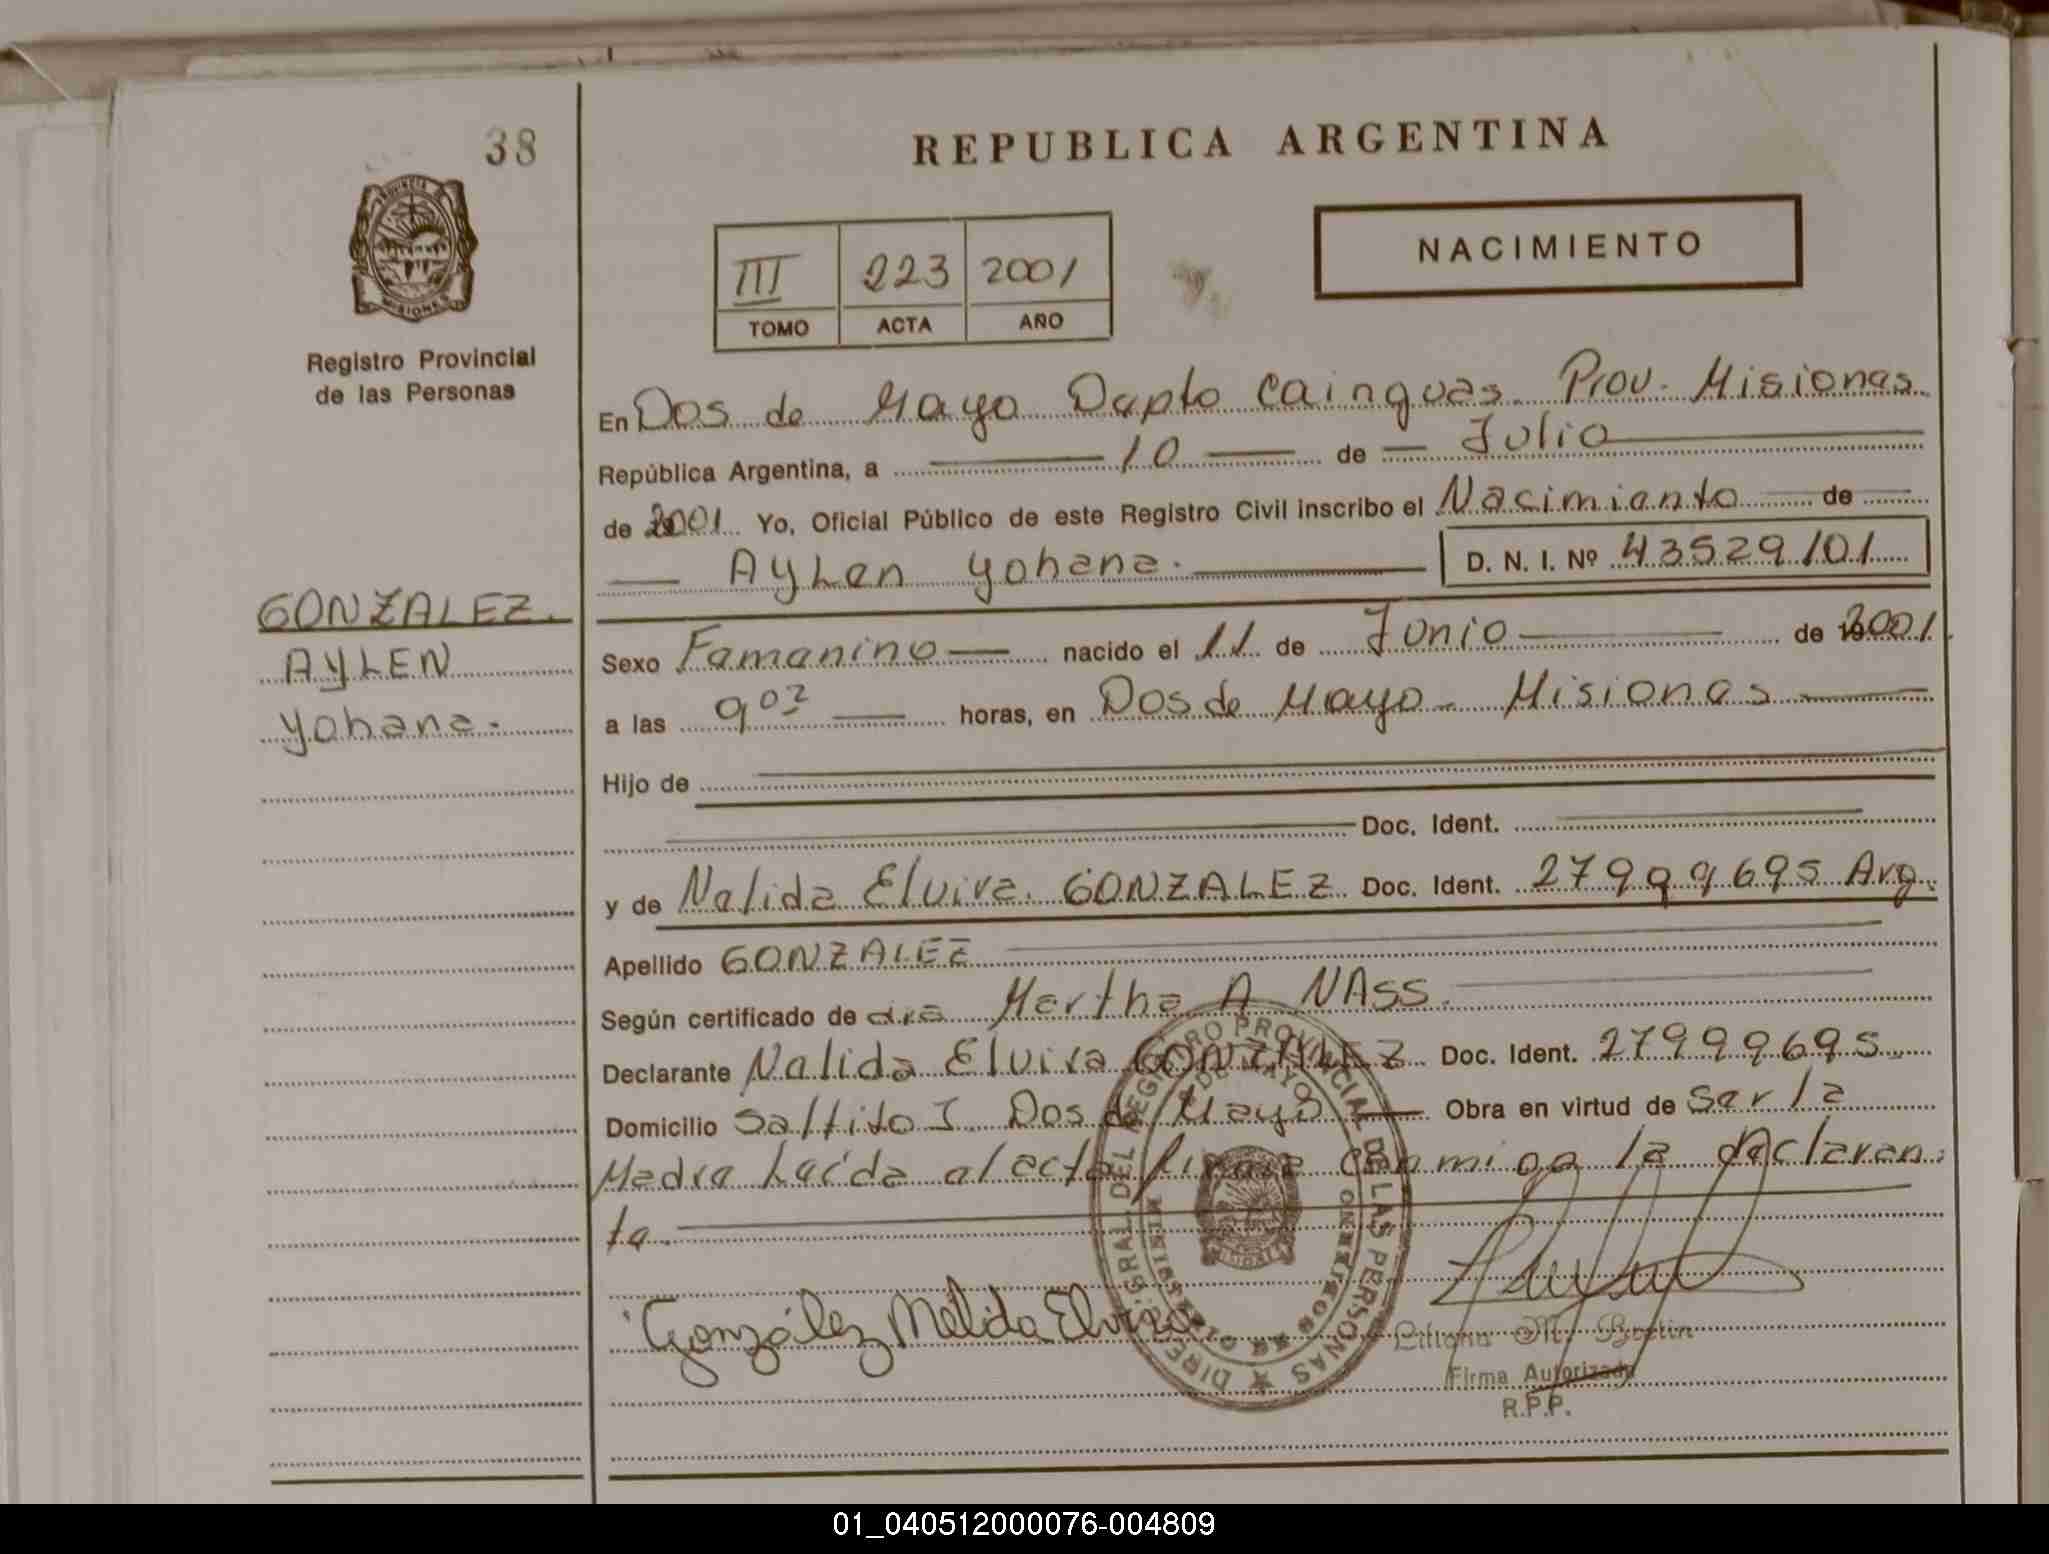 38
REPUBLICA ARGENTINA
PROVINCIA
MISIONES
Registro Provincial
de las Personas
NACIMIENTO
III 223 2001
TOMO ACTA AÑO
En Dos de Mayo Dapto Cainguas. Prov. Misionas.
República Argentina, a 10 de Julio
de 2001 Yo, Oficial Público de este Registro Civil inscribo el Nacimianto de
Aylen Yohana. D. N. I. Nº 43529101
GONZALEZ.
AYLEN
Yohana.
Sexo Famanino nacido el 11 de Junio de 2001.
a las 9 horas, en Dos de Mayo - Misionas
Hijo de
Doc. Ident.
y de Nalida Elvira GONZALEZ Doc. Ident. 27999695 Arg.
Apellido GONZALEZ
Según certificado de dra Martha A NASS.
Declarante Nalida Elvira GONZALEZ Doc. Ident. 27999695.
Domicilio Saltito I Dos de Mayo Obra en virtud de sar la
Madra Laída al acta firma conmigo la daclaran
ta.
González Nélida Elvira
DIREC. GRAL. DEL REGISTRO PROVINCIAL DE LAS PERSONAS
2 DE MAYO
Liliana M. Bretin
Firma Autorizada
R.P.P.
01_040512000076-004809